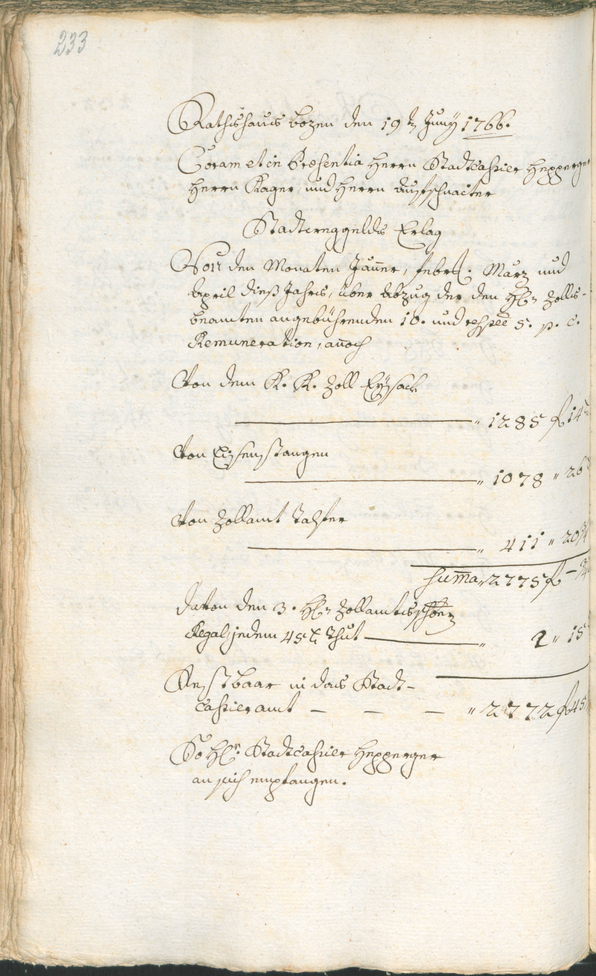 233
Rathshaus Bozen den 19 t. Juny 1766.
Coram et in Presentia Herrn Stadtcassier Hepperger
Herrn Rager, und Herrn
Stadtweggelds Erlag
Vor den Monaten Jäner, Febr. Marz und
April dieß Jahrs, über Abzug der den H. Zolls-
beamten angebührenden 10. und respee 5. p. c.
Remuneration, annoch
Von dem K. K. Zoll Eysack
" 1285 f 14
Von Eisenstangen
" 1078 " 26
Von Zollamt Talfer
" 411 " 20
Suma 2775 f -
Davon den 3. H. Zollamts
Regal jedem 45 Thut " 2 " 15
Rest baar in das Stadt-
cassieramt - - - " 2772 f 45
So H. Stadtcassier Hepperger
an sich empfangen.